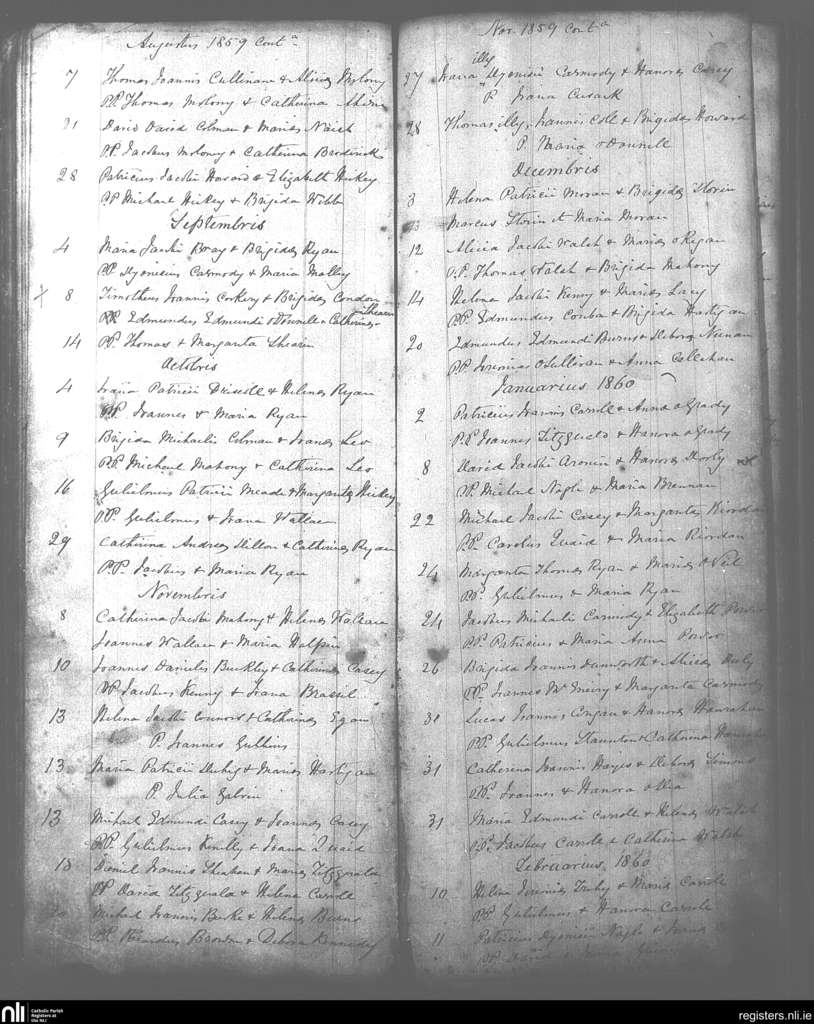 Augustus 1859 Cont.d
7 Thomas Joannis Cullinane & Alicia Molony
P.P. Thomas Molony & Catherina
21 David David Colman & Maria Naish
P.P. Jacobus Molony & Catherina Brodrick
28 Patricius Jacobi Howard & Elizabeth Hickey
PP Michael Hickey & Brigida Webb
Septembris
4 Maria Jacobi Bray & Brigida Ryan
PP Dyonisius Carmody & Maria Malley
X 8 Timotheus Joannis Corkery & Brigida Condon
PP. Edmundus Edmundi O'Donnell & Catherina Shearin
14 PP. Thomas & Margarita Shearin
Octobris
4 Joana Patricii Driscoll & Helena Ryan
PP Joannes & Maria Ryan
9 Brigida Michaelis Colman & Joana Leo
P.P. Michael Mahony & Catherina Leo
16 Gulielmus Patricii Meade & Margarita Hickey
P.P. Gulielmus & Joana Wallace
29 Catherina Andreas Dillon & Catherina Ryan
P.P. Jacobus & Maria Ryan
Novembris
8 Catherina Jacobi Mahony & Helena Wallace
Joannes Wallace & Maria Halpin
10 Joannes Danielis Buckley & Catherina Casey
PP Jacobus Kenny & Joana Brassil
13 Helena Jacobi Connors & Catherina Egan
P. Joannes Gubbins
13 Maria Patricii Duhig & Maria Hartigan
P. Julia
13 Michael Edmundi Casey & Joanna Casey
P.P. Gulielmus Kenelly & Joana Quaid
18 Daniel Joannis Sheahan & Maria Fitzgerald
PP David Fitzgerald & Helena Carroll
20 Michael Joannis Burke & Helena Burns
PP. Ricardus Browne & Debora Kennedy
Nov. 1859 Cont.d
27 Joana illy Dyonisii Carmody & Hanora Casey
P. Joana Cusack
28 Thomas illy. Joannis Cole & Brigida Howard
P. Maria O'Donnell
Decembris
3 Helena Patricii Moran & Brigida Florin
Marcus Florin & Maria Moran
12 Alicia Jacobi Walsh & Maria O'Regan
P.P. Thomas Walsh & Brigida Mahony
14 Helena Jacobi Kenny & Maria Lacy
P.P. Edmundus & Brigida Hartigan
20 Edmundus Edmundi Burns & Debora Neenan
P.P. Jeremias O'Sullivan & Anna Callahan
Januarius 1860
2 Patricius Joannis Carroll & Anna O'Grady
P.P. Joannes Fitzgerald & Hanora O'Grady
8 David Jacobi Cronin & Hanora
PP. Michael Nagle & Maria Brennan
22 Michael Jacobi Casey & Margarita Riordan
P.P. Carolus Quaid & Maria Riordan
24 Margarita Thomas Ryan & Maria O'Neil
PP. Gulielmus & Maria Ryan
24 Jacobus Michaelis Carmody & Elizabeth Power
P.P. Patricius & Maria Anna Power
26 Brigida Joannis Dannforth & Alicia
PP. Joannes McEneiry & Margarita Carmody
31 Lucas Joannes Cregan & Hanora Hanrahan
P.P. Gulielmus Staunton & Catherina Hanrahan
31 Catherina Joannis Hayes & Debora Simons
PP. Joannes & Hanora
31 Maria Edmundi Carroll & Helena Walsh
P.P. Jacobus Carroll & Catherina Walsh
Februarius 1860
10 Helena Jeremias & Maria Carroll
PP. Gulielmus & Hanora Carroll
11 Patricius Dyonisii Nagle &
PP David &
nli
Catholic Parish
Registers at
the NLI
registers.nli.ie